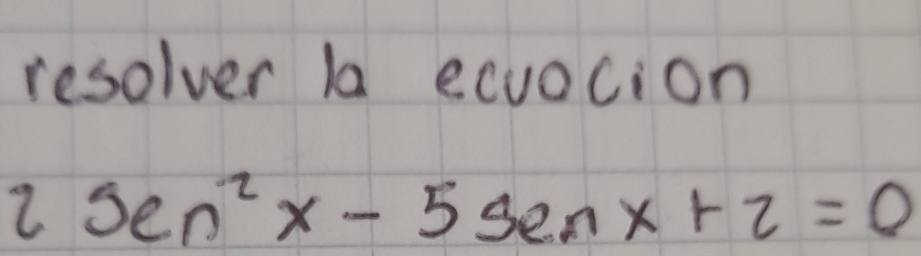 resolver la ecuacion
2 Sen² x - 5 sen x + 2 = 0